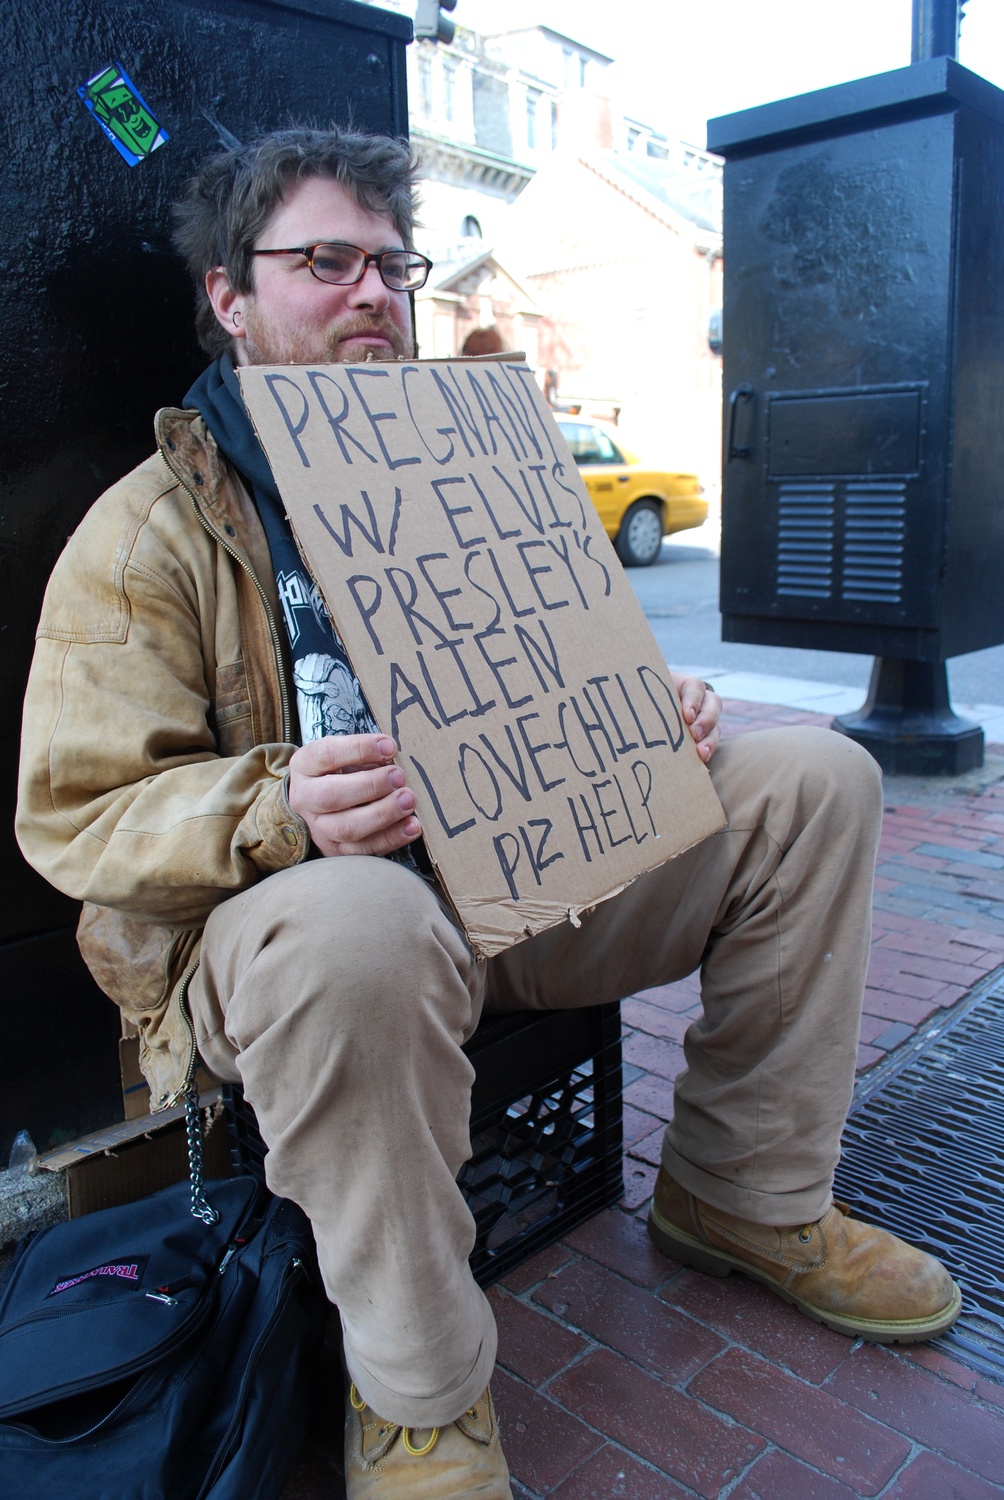 PREGNANT
W/ ELVIS
PRESLEY'S
ALIEN
LOVE-CHILD
PLZ HELP